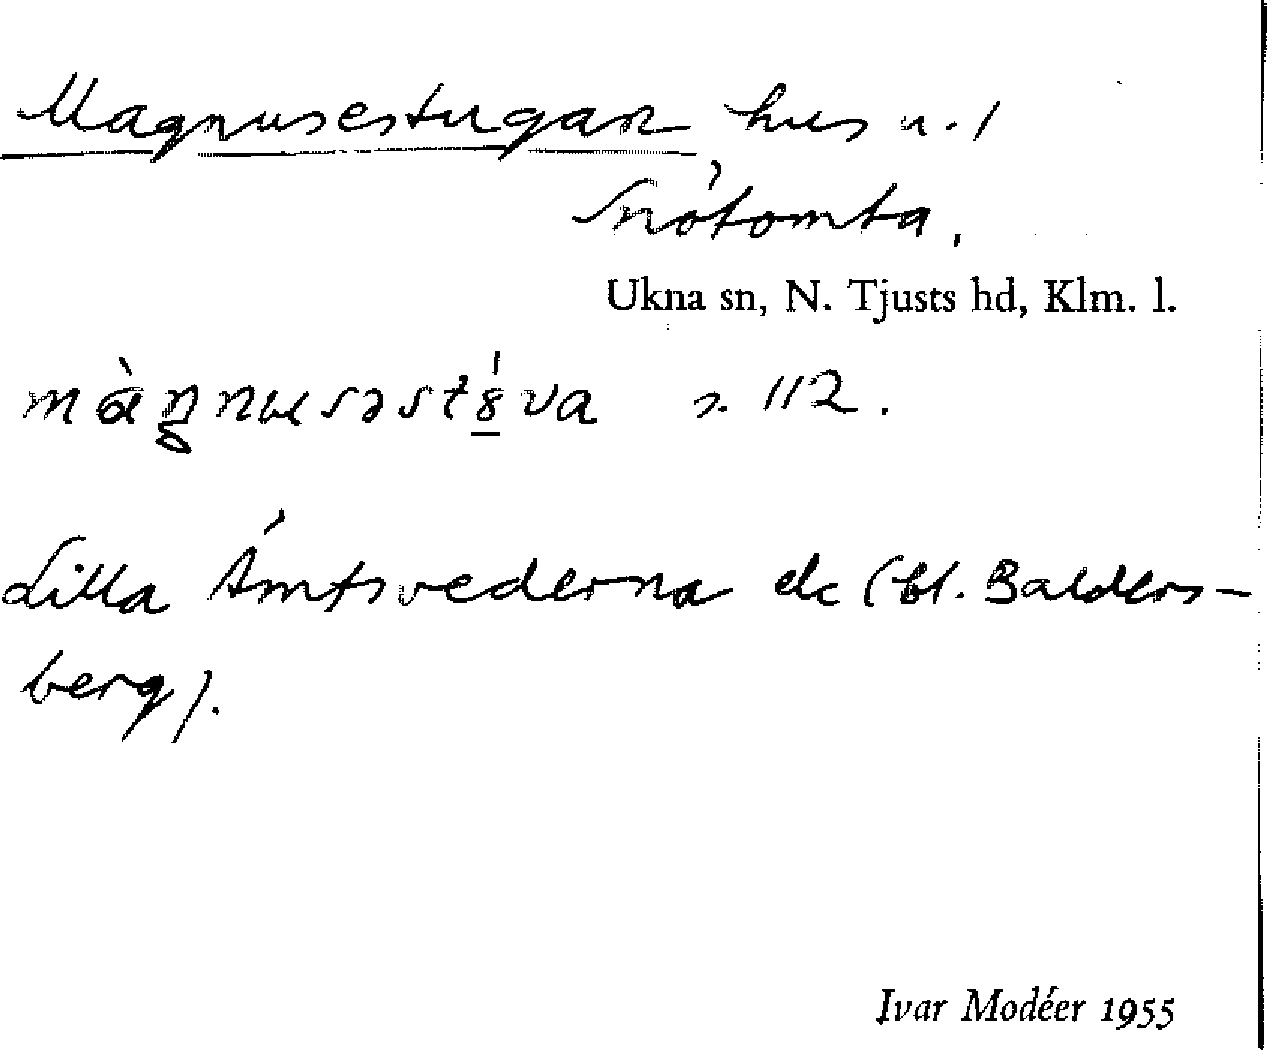 Magnusestugan hus u. /
Snötomta.
Ukna sn, N. Tjusts hd, Klm. l.
s. 112.
Lilla Åmtsvederna etc (bl. Balders-
berg).
Ivar Modéer 1955